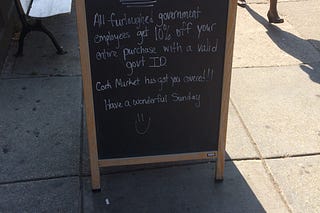 All furloughed government
employees get 10% off your
entire purchase with a valid
govt ID
Cork Market has got you covered!!!
Have a wonderful Sunday